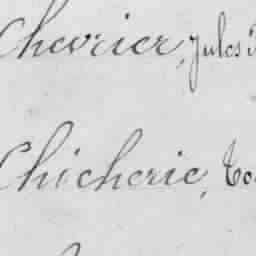 Chevrier, Jules
Chicherie,